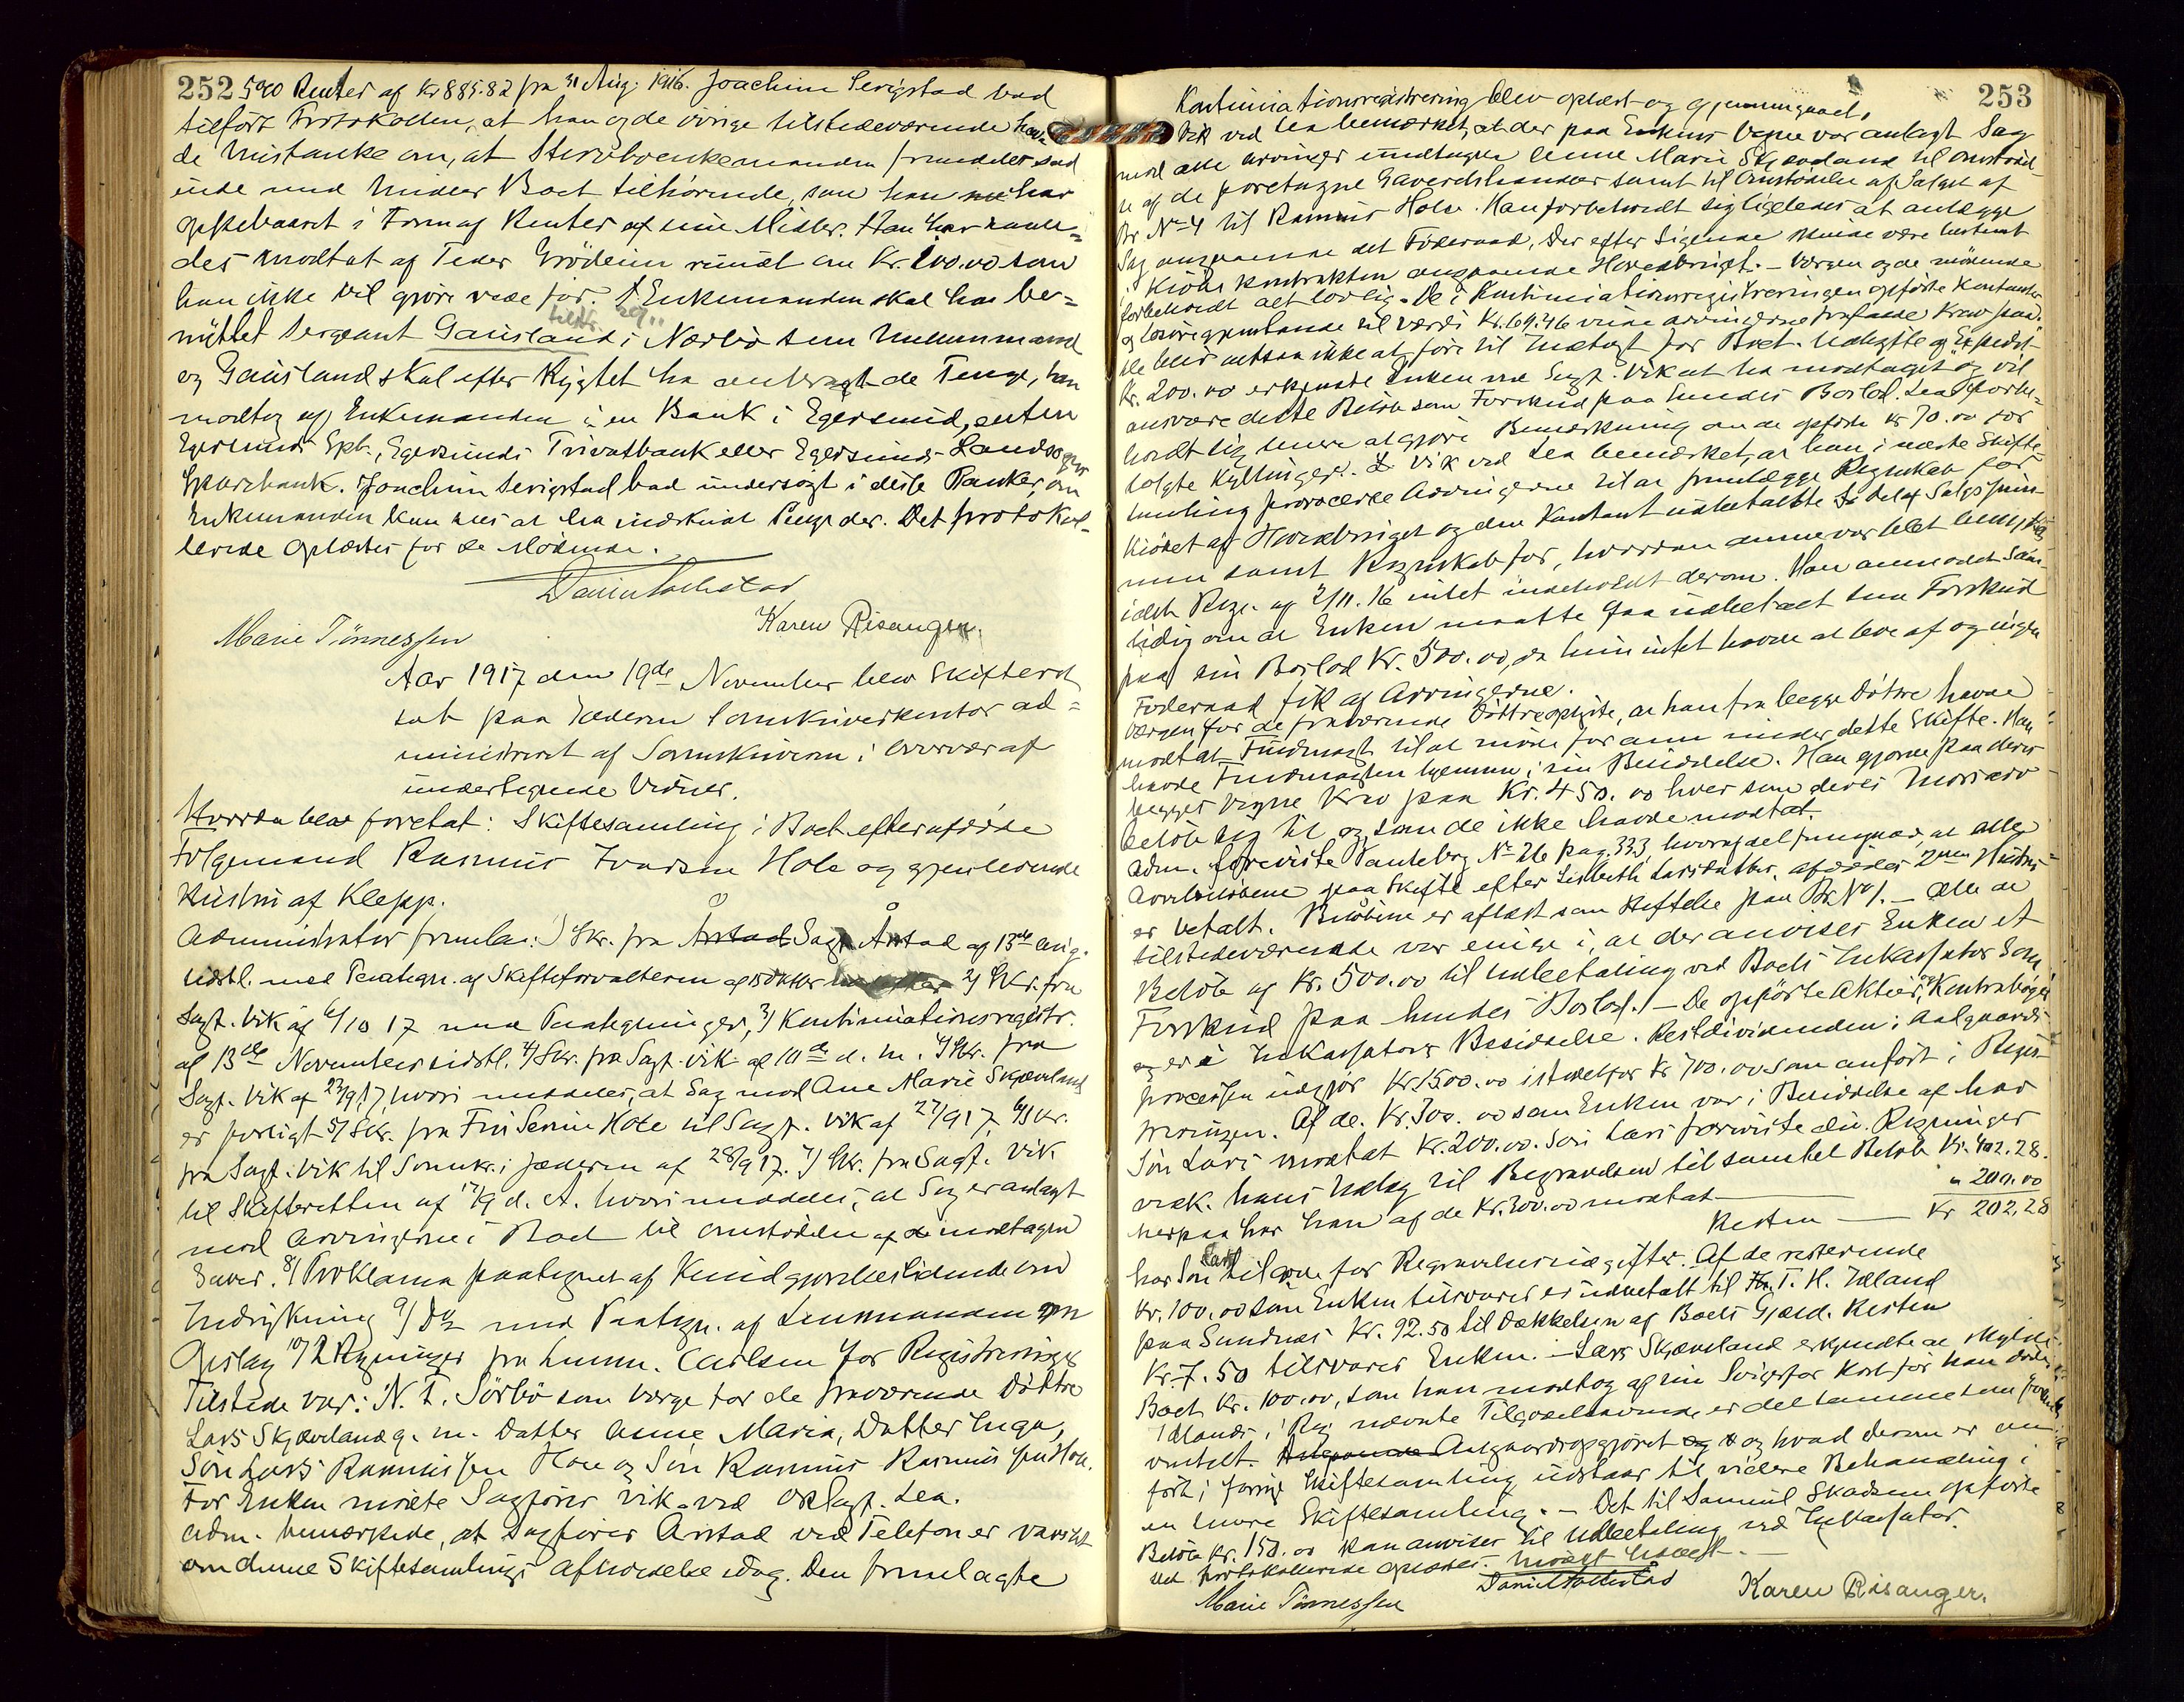 252 5% Renter af Kr 885.82 fra 31 Aug. 1916. Joachim Serigstad bad
tilført Protokollen, at han og de øvrige tilstedeværende hav-
de Mistanke om, at Stervboenkemanden fremdeles sad
inde med Midler Boet tilhørende, som han har
opsebaaret i Form af Renter af sine Midler. Han har saale-
des modtat af Peder Grødeim rundt om Kr. 200.00 som
han ikke vil gjøre rede for. Enkemanden skal ha be-
nyttet Sergeant Gausland i Nærbø som Mellemmand
og Gausland skal efter Rygtet ha anbragt de Penge, han
modtog af Enkemanden i en Bank i Egersund, enten
Egersunds Spb., Egersunds Privatbank eller Egersunds Landsogns
Sparebank. Joachim Serigstad bad undersøgt i disse Banker, om
Enkemanden kan sees at ha indskudt Penge der. Det protokol-
lerede oplæstes for de Mødende.
Daniel
Marie Tønnessen
Karen Risanger.
Aar 1917 den 19de November blev Skifteret
sat paa Jæderen Sorenskriverkontor ad-
ministreret af Sorenskriveren i Overvær af
undertegnede Vidner.
Hvorda blev foretat: Skiftesamling i Boet efter afdøde
Følgemand Rasmus Ivarsen Hole og gjenlevende
Hustru af Klepp.
Administrator fremla: 1) Skr. fra Sagf. Årstad af 13de aug.
sidstl. med Paategn. af Skifteforvalteren af 2) Skr. fra
Sagf. Vik af 6/10 17 med Paategninger, 3) Kontinuationsregistr.
af 13de November sidstl. 4) Skr. fra Sagf. Vik af 10de d. m. Skr. fra
Sagf. Vik af 22/9 17, hvori meddeles, at Sag mod Ane Marie Skjæveland
er forligt 5) Skr. fra Fru Serine Hole til Sagf. Vik af 27/9 17, 6) Skr.
fra Sagf. Vik til Sorenskr. i Jæderen af 28/9 17. 7) Skr. fra Sagf. Vik
til Skifteretten af 17/9 d. A. hvori meddeles, at Sag er anlagt
mod Arvingerne i Boet til Omstødelse af de modtagne
Gaver. 8) Proklama paategnet af Kundgjørelsestidende om
Indrykning 9) Do med Paategn. af Lensmanden om
Opslag 10) 2 Regninger fra Lensm. Carlsen for Registreringer
Tilstede var: N. T. Sørbø som Værge for de fraværende Døttre
Lars Skjæveland g. m. Datter Anne Maria, Datter Inga,
Søn Lars Rasmussen Hole og Søn Rasmus Rasmussen Hole.
For Enken mødte Sagfører Vik ved OrSagf. Lea.
Adm. bemærkede, at Sagfører Årstad ved Telefon er varslet
om denne Skiftesamlings Afholdelse idag. Den fremlagte
253
Kontinuationsregistrering blev oplæst og gjennemgaaet.
Vik ved Lea bemærket, at der paa Enkens Vegne var anlagt Sag
mod alle Arvinger undtagen Anne Marie Skjæveland til Omstødel-
se af de foretagne Gavedishandler samt til Omstødelse af Salget af
Br. No 4 til Rasmus Hole. Han forbeholdt sig ligeledes at anlægge
Sag angaaende det Føderaad, der efter Sigende skulde være bestemt
i Kjøbekontrakten angaaende Hovedbruget. — Værgen og de mødende
forbeholdt alt lovlig. De i Kontinuationsregistreringen opførte Kontanter
og Løsøregjenstande til Værdi Kr. 69.46 vilde Arvingerne frafalde Krav paa.
De blir altsaa ikke at føre til Indtægt for Boet.
Kr. 200.00 erkjendte Enken ved Sagf. Vik at ha modtaget og vil
ansvare dette Beløb som Forskud paa hendes Boslod. Lea forbe-
holdt sig senere at gjøre Bemærkning om de opførte Kr 70.00 for
solgte Kyllinger. Vik ved Lea bemærket, at han i næste Skifte-
samling provocerer Arvingerne til at fremlægge Regnskab for
Kjøbet af Hovedbruget og den Kontant udbetalte Del af Salgssum-
men samt Regnskab for, hvordan denne var blet benyttet,
idet Regs. af 2/11. 16 intet indeholdt derom. Han anmodet Sam-
tidig om at Enken maatte faa udbetalt som Forskud
paa sin Boslod Kr. 500.00, da hun intet havde at leve af og ingen
Føderaad fik af Arvingerne.
Værgen for de fraværende Døttre oplyste, at han fra begge Døtre havde
modtat Fuldmagt til at møde for dem under dette Skifte. Han
havde Fuldmagten hjemme i sin Besiddelse. Han gjorde paa deres
begges Vegne Krav paa Kr. 450.00 hver som deres Mors Arv
beløb sig til og som de ikke havde modtat.
Adm. foreviste Pantebog No 26 pag. 333, hvoraf det fremgaar, at alle
Arvebeløbene paa Skifte efter Lisbeth Larsdatter, afdødes 2den Hustru,
er betalt. Beløbene er aflæst som Heftelse paa Br. No 1. — Alle de
tilstedeværende var enige i, at der anvises Enken et
Beløb af Kr. 500.00 til Udbetaling ved Boets Inkassator som
Forskud paa hendes Boslod. — De opførte Aktier, og Kontrabøger
og er i Inkassators Besiddelse. Restdividenden i Aalgaards-
processen udgjør Kr. 1500.00 istedetfor Kr 700.00 som anført i Regis-
treringen. Af de Kr. 300.00 som Enken var i Besiddelse af har
Søn Lars modtat Kr. 200.00. Søn Lars foreviste div. Regninger
vedk. hans Udlæg til Begravelsen til samlet Beløb Kr. 402.28.
herpaa har han af de Kr. 300.00 modtat — " 200.00
Resten — Kr 202.28
har Søn Lars tilgode for Begravelsesudgifter. Af de resterende
Kr. 100.00 som Enken tilsvarer er udbetalt til T. H. Iæland
paa Sandnæs Kr. 92.50 til Dækkelsen af Boets Gjæld. Resten
Kr. 7.50 tilsvarer Enken. — Lars Skjæveland erkjendte at skylde
Boet Kr. 100.00, som han modtog af sin Svigerfar kort før han døde.
i Reg. nævnte Tilgodehavende er det samme som
omtalt. Aalgaardsopgjøret og hvad derom er an-
ført i forrige Skiftesamling udstaar til videre Behandling i
en senere Skiftesamling. — Det til Samuel Skadsem opførte
Beløb Kr. 150.00 kan anvises til Udbetaling ved Inkassator.
Det protokollerede oplæstes. Mødet hævet. —
Marie Tønnessen
Daniel
Karen Risanger.